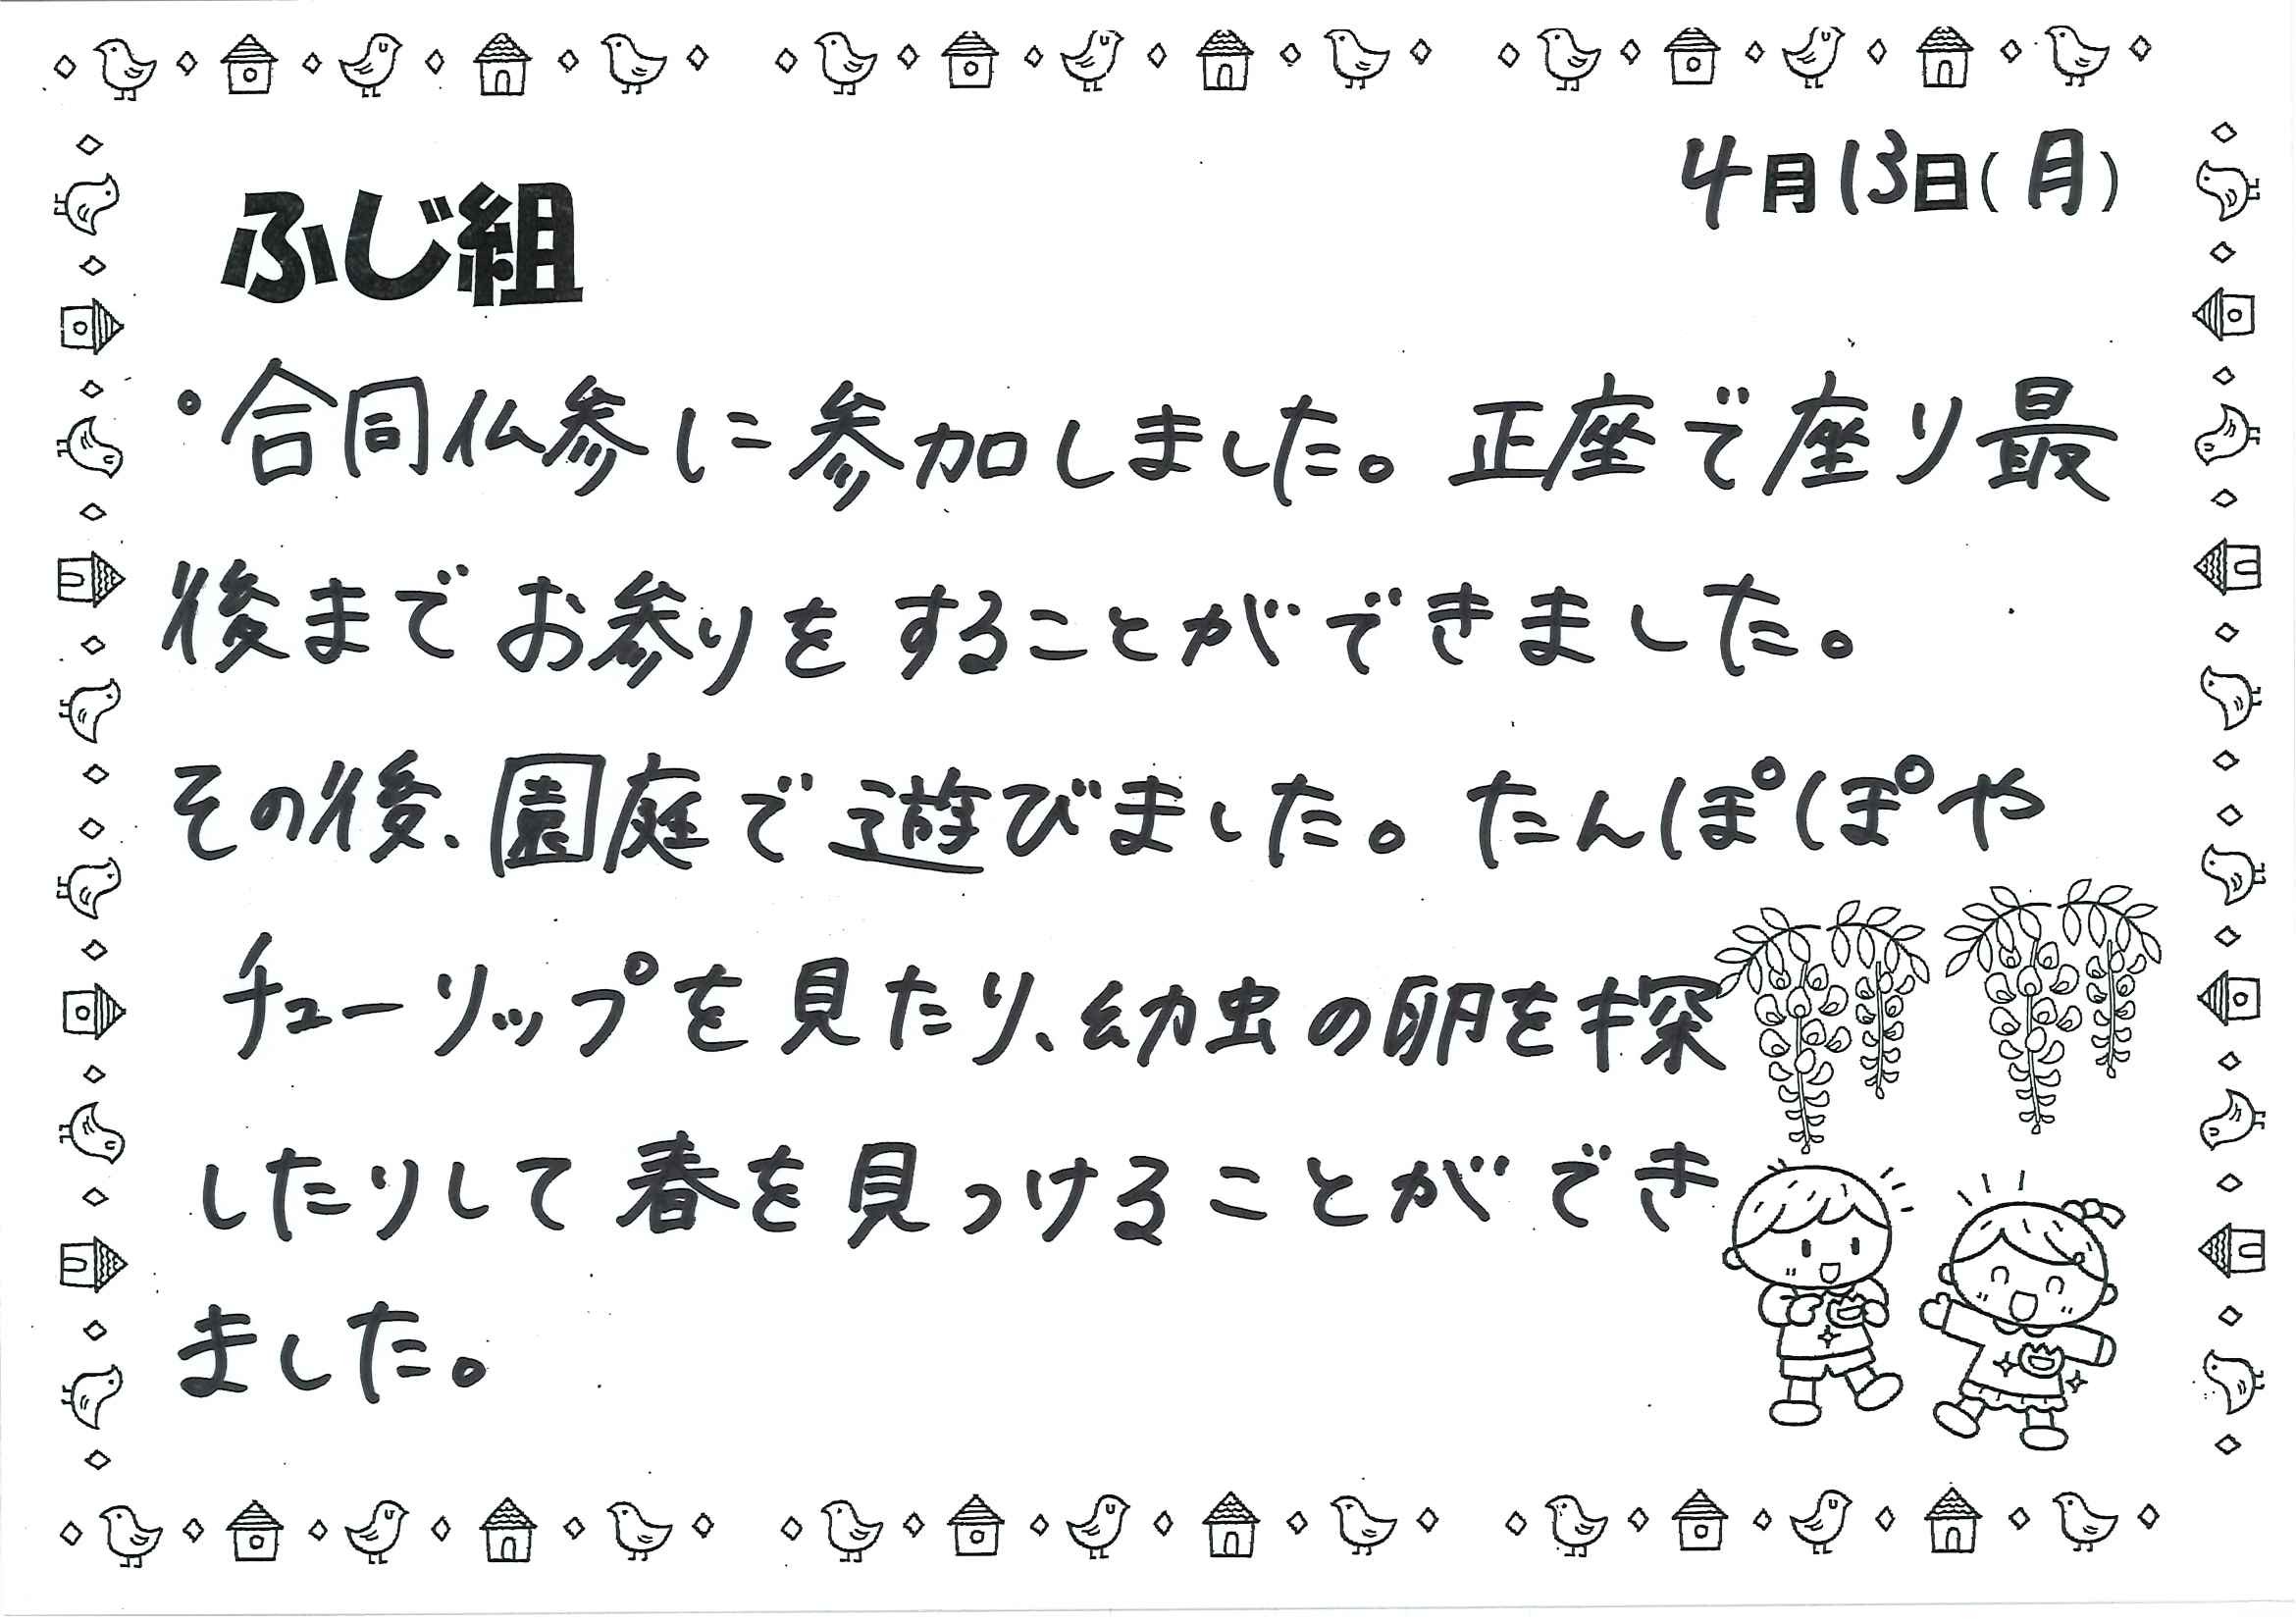 4月13日(月)
ふじ組
・合同仏参に参加しました。正座で座り最
後までお参りをすることができました。
その後、園庭で遊びました。たんぽぽや
チューリップを見たり、幼虫の卵を探
したりして春を見つけることができ
ました。